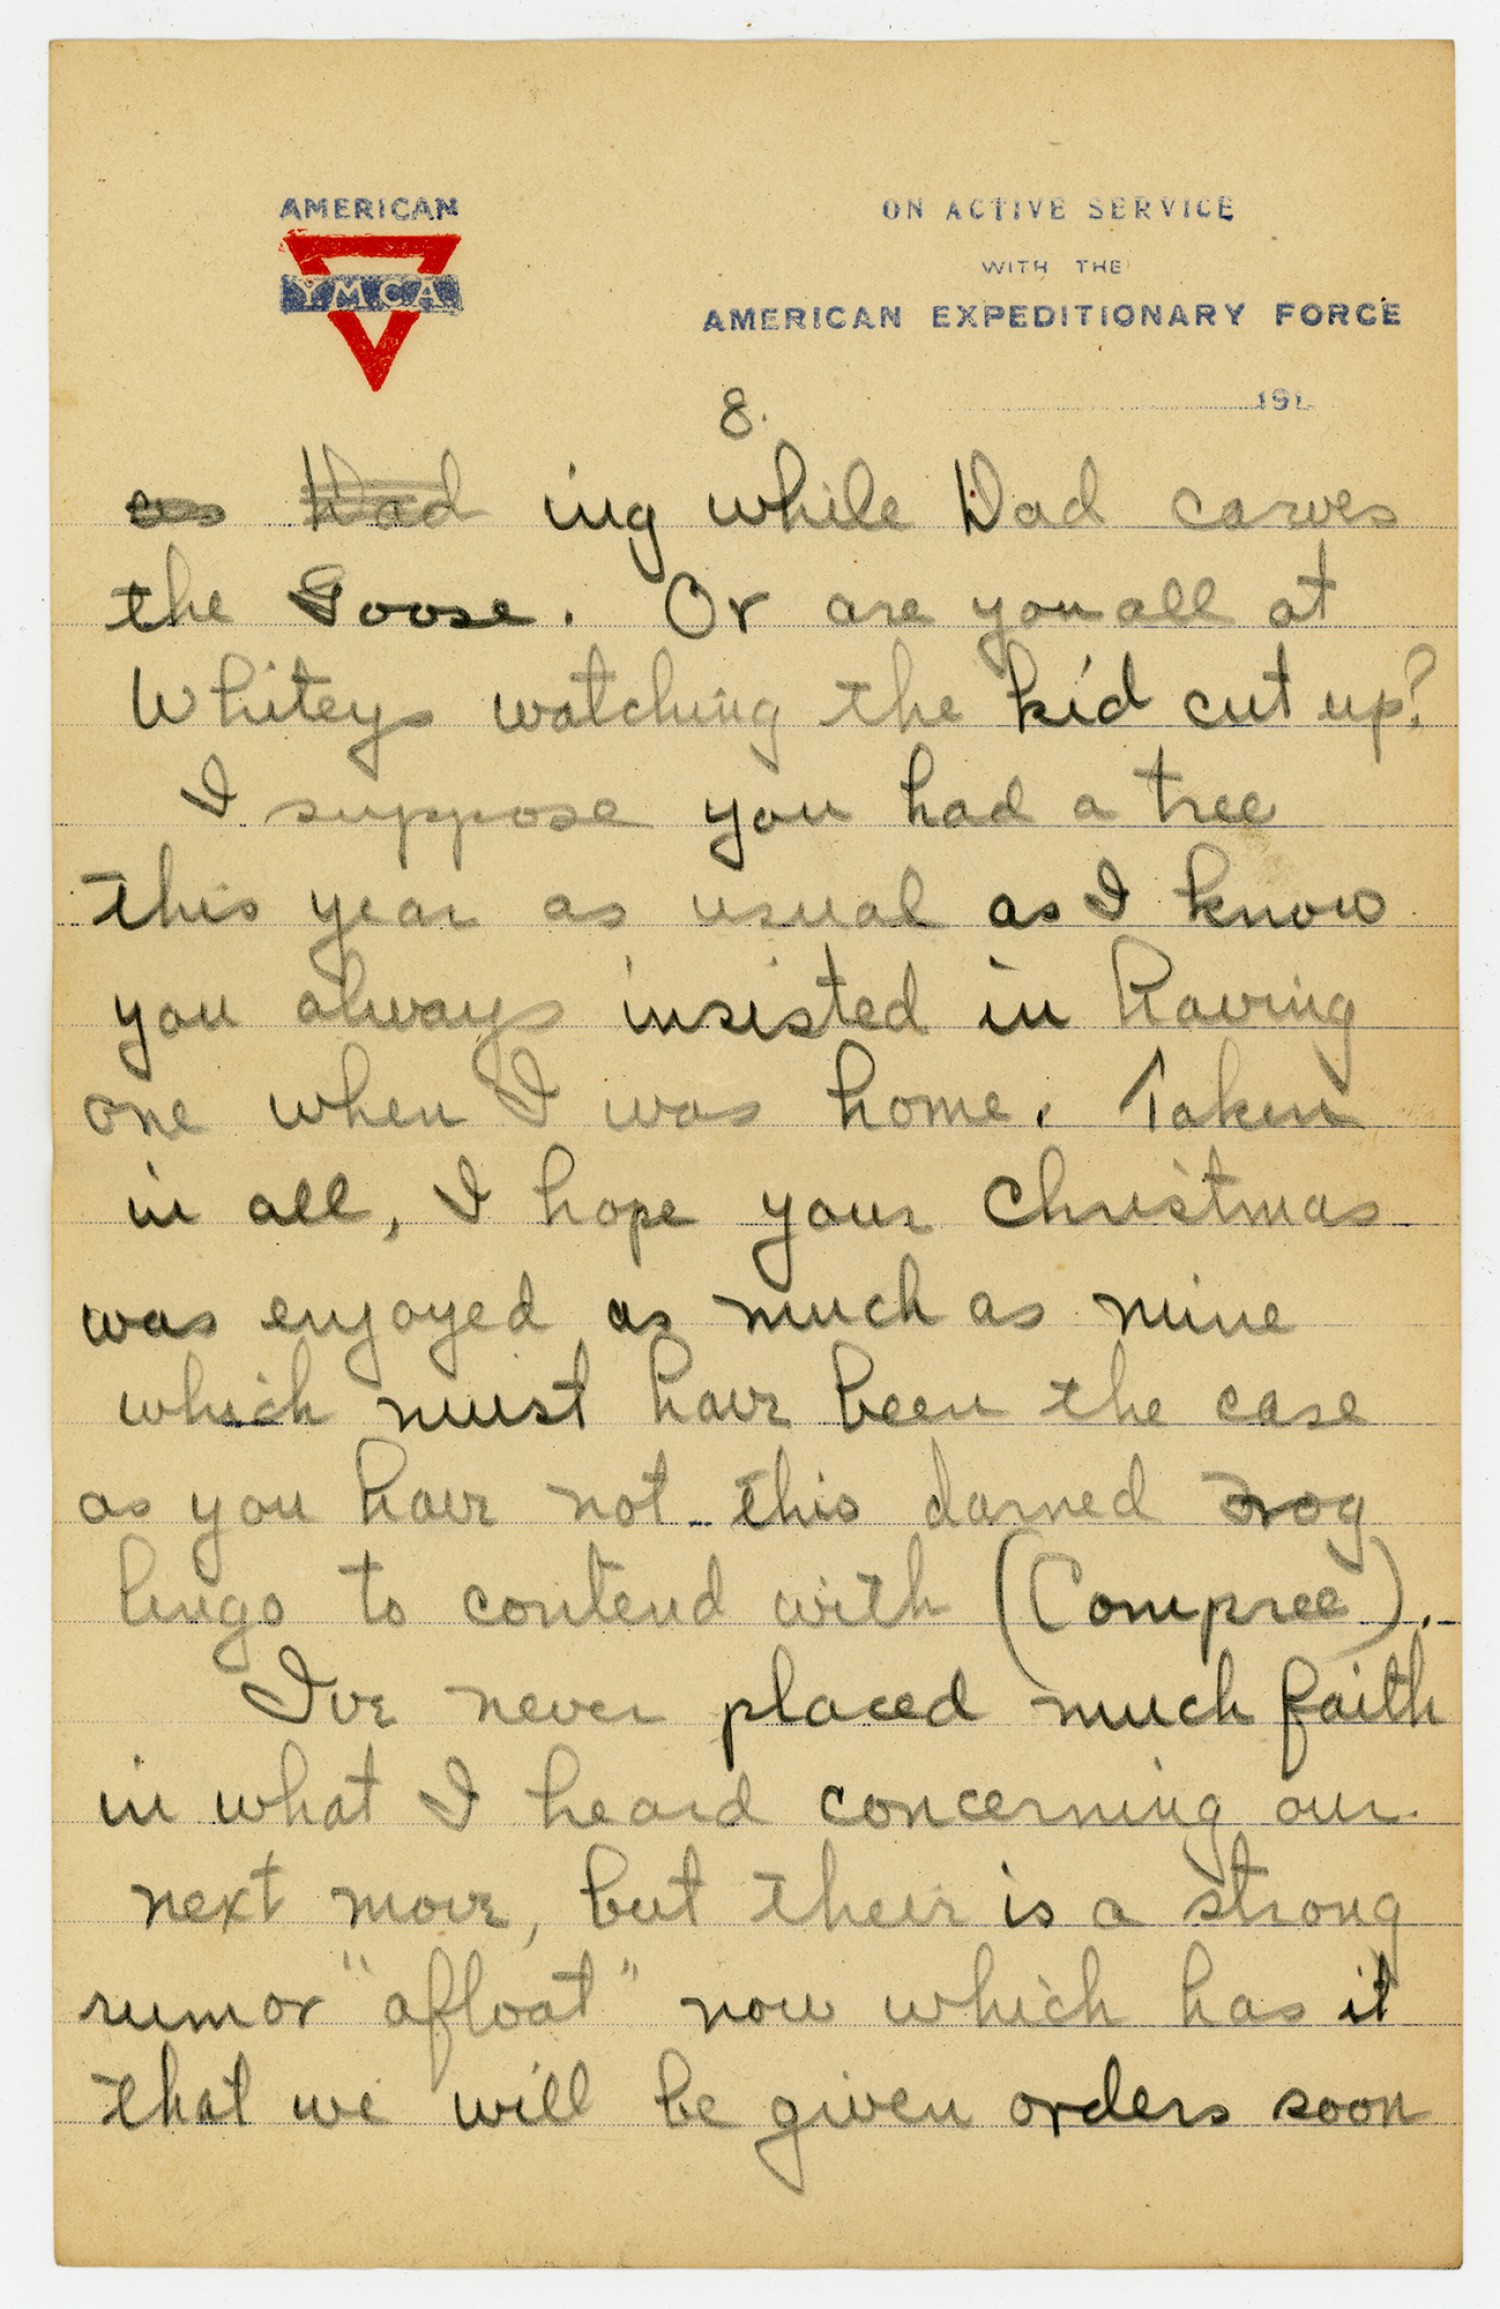 AMERICAN
YMCA
ON ACTIVE SERVICE
WITH THE
AMERICAN EXPEDITIONARY FORCE
191
8.
as Dad ing while Dad carves
the Goose. Or are you all at
Whiteys watching the kid cut up?
I suppose you had a tree
this year as usual as I know
you always insisted in having
one when I was home. Taken
in all, I hope your Christmas
was enjoyed as much as mine
which must have been the case
as you have not this darned Frog
lingo to contend with (Compree).
Ive never placed much faith
in what I heard concerning our
next move, but their is a strong
rumor "afloat" now which has it
that we will be given orders soon